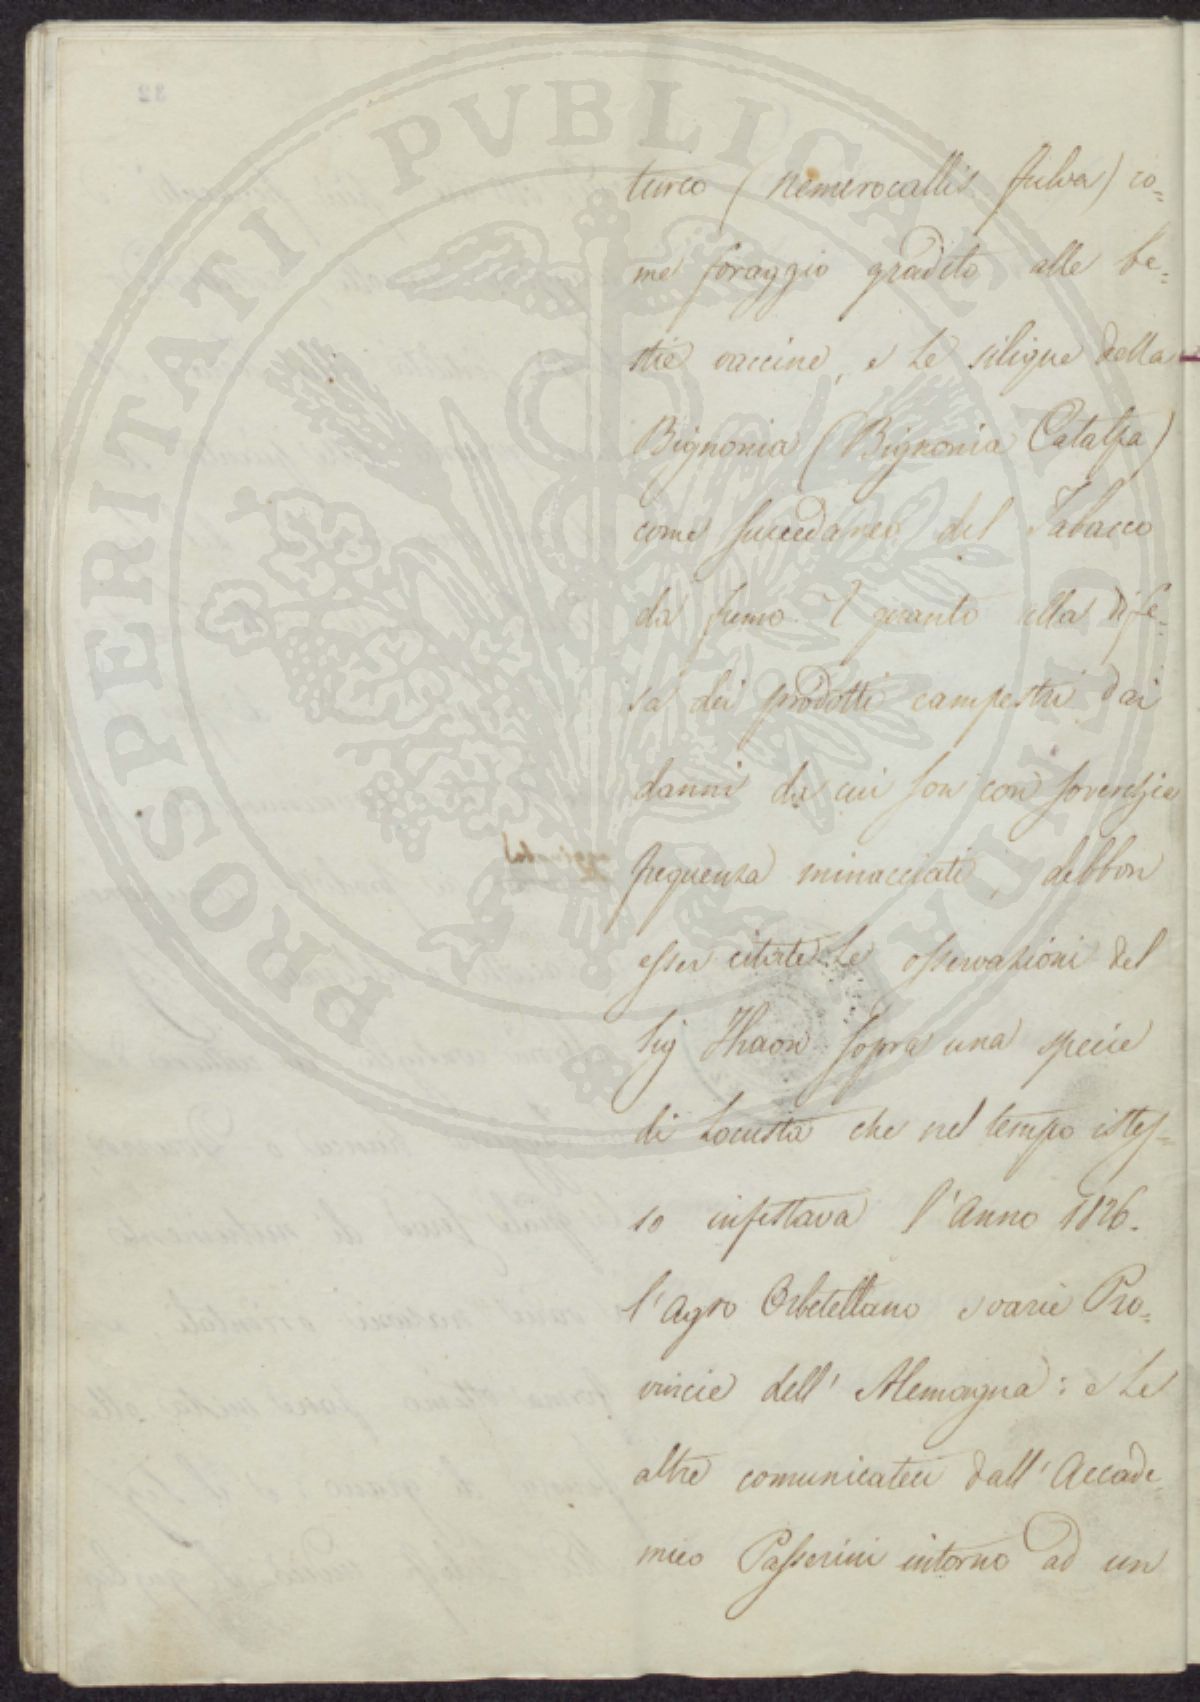 PROSPERITATI PUBLICAE AUGENDAE
turco (Hemerocallis fulva) co=
me foraggio gradito alle be=
stie vaccine, e le silique della
Bignonia (Bignonia Catalpa)
come succedaneo del Tabacco
da fumo. E quanto alla dife=
sa dei prodotti campestri dai
danni da cui son con soverchia
frequenza minacciati, debbon
esser citate le osservazioni del
Sig Thaon sopra una specie
di Locusta che nel tempo istes=
so infestava l'Anno 1826.
l'Agro Orbetellano e varie Pro=
vincie dell'Alemagna: e le
altre comunicateci dall'Accade=
mico Passerini intorno ad un